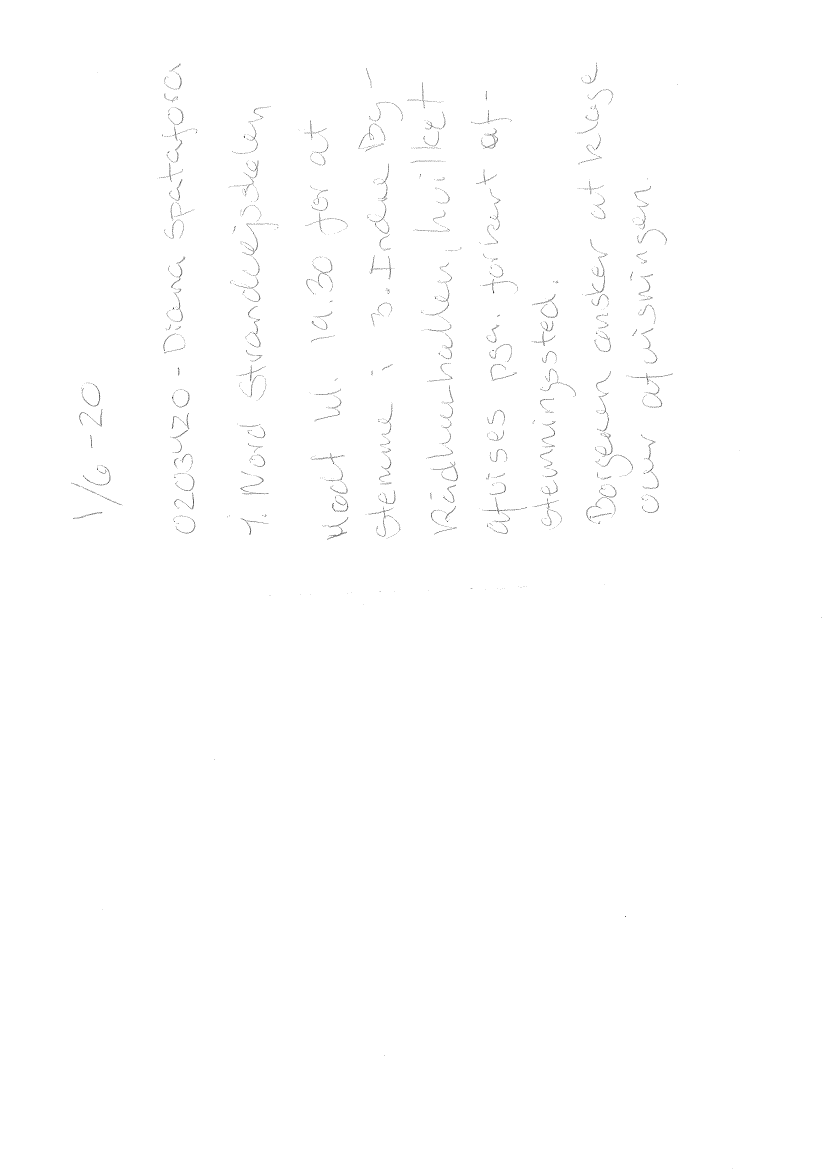 1/6-20
0203420 - Diana Spatafora
1. Nord Strandvejsskolen
Mødt kl. 19.30 for at
stemme i 3. Indre By -
Rådhushallen, hvilket
afvises pga. forkert af-
stemningssted.
Borgeren ønsker at klage
over afvisningen.